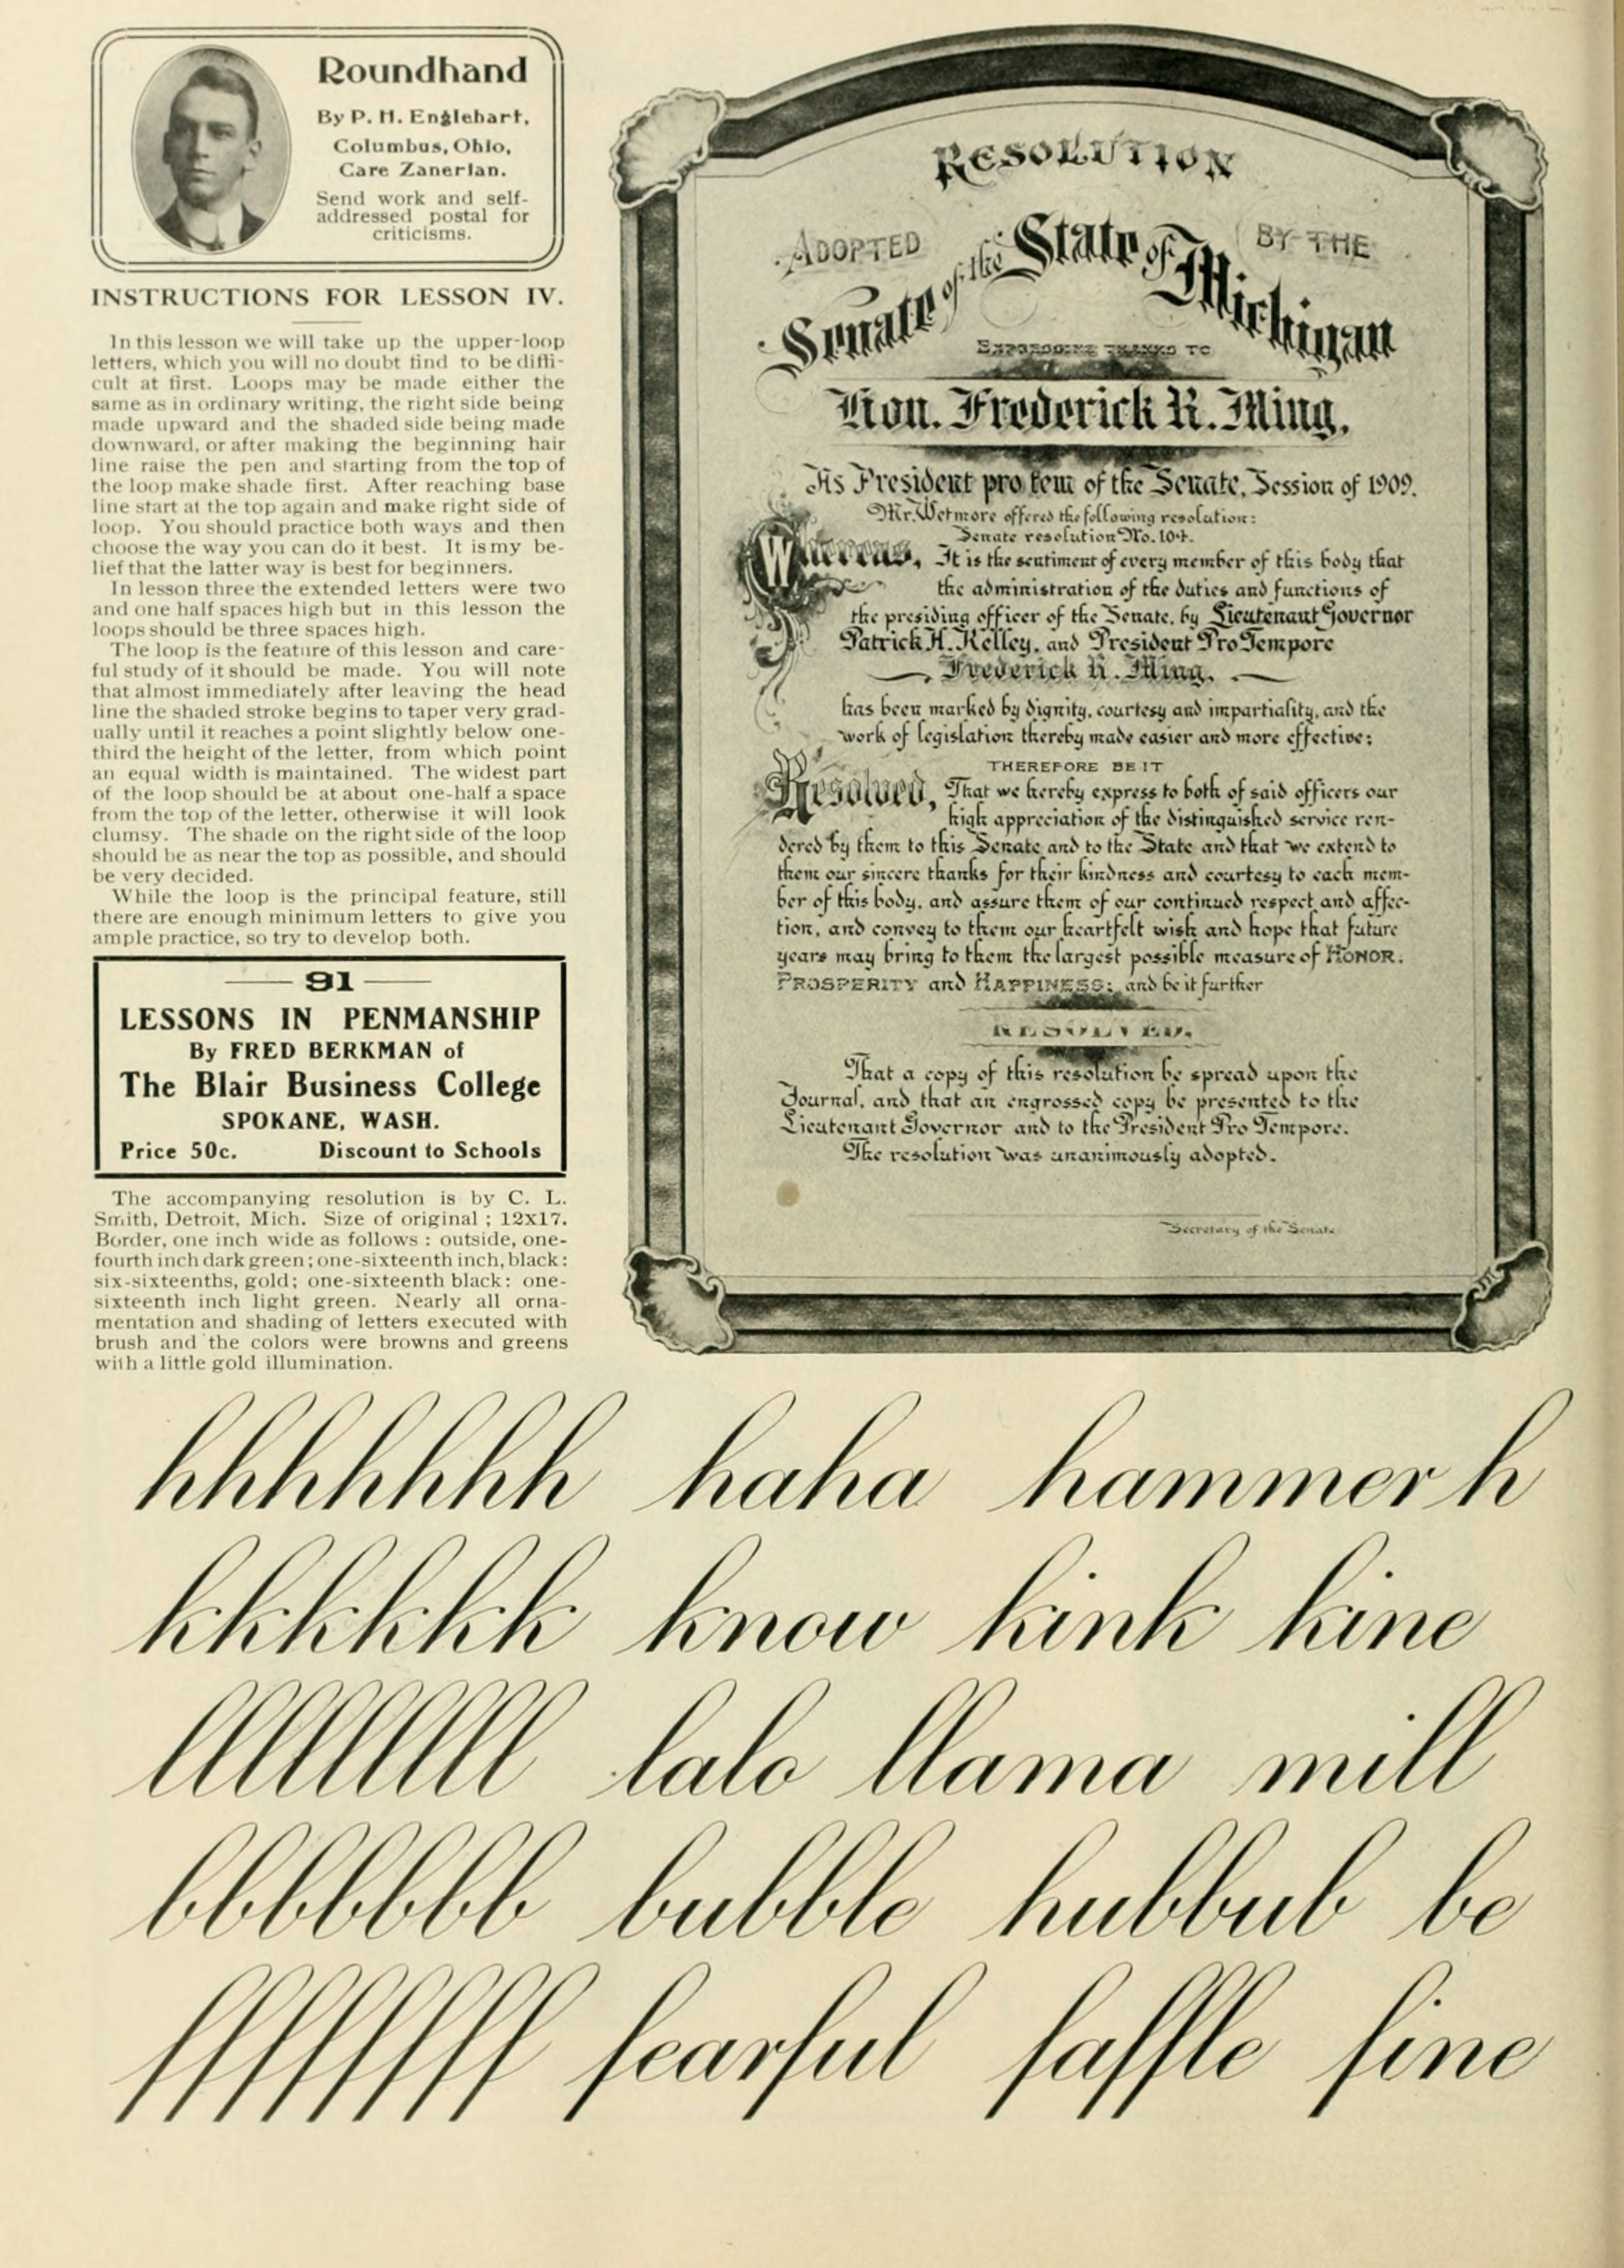 Roundhand
By P. H. Englehart,
Columbus, Ohio,
Care Zanerian.
Send work and self-
addressed postal for
criticisms.
INSTRUCTIONS FOR LESSON IV.
In this lesson we will take up the upper-loop
letters, which you will no doubt find to be diffi-
cult at first. Loops may be made either the
same as in ordinary writing, the right side being
made upward and the shaded side being made
downward, or after making the beginning hair
line raise the pen and starting from the top of
the loop make shade first. After reaching base
line start at the top again and make right side of
loop. You should practice both ways and then
choose the way you can do it best. It is my be-
lief that the latter way is best for beginners.
In lesson three the extended letters were two
and one half spaces high but in this lesson the
loops should be three spaces high.
The loop is the feature of this lesson and care-
ful study of it should be made. You will note
that almost immediately after leaving the head
line the shaded stroke begins to taper very grad-
ually until it reaches a point slightly below one-
third the height of the letter, from which point
an equal width is maintained. The widest part
of the loop should be at about one-half a space
from the top of the letter, otherwise it will look
clumsy. The shade on the right side of the loop
should be as near the top as possible, and should
be very decided.
While the loop is the principal feature, still
there are enough minimum letters to give you
ample practice, so try to develop both.
91
LESSONS IN PENMANSHIP
By FRED BERKMAN of
The Blair Business College
SPOKANE, WASH.
Price 50c. Discount to Schools
The accompanying resolution is by C. L.
Smith, Detroit, Mich. Size of original ; 12x17.
Border, one inch wide as follows : outside, one-
fourth inch dark green ; one-sixteenth inch, black :
six-sixteenths, gold; one-sixteenth black: one-
sixteenth inch light green. Nearly all orna-
mentation and shading of letters executed with
brush and the colors were browns and greens
with a little gold illumination.
RESOLUTION
ADOPTED BY THE
Senate of the State of Michigan
EXPRESSIVE THANKS TO
Hon. Frederick R. Ming,
As President pro tem of the Senate, Session of 1909.
Mr. Wetmore offered the following resolution:
Senate resolution No. 104.
Whereas, It is the sentiment of every member of this body that
the administration of the duties and functions of
the presiding officer of the Senate, by Lieutenant Governor
Patrick H. Kelley, and President Pro Tempore
Frederick R. Ming,
has been marked by dignity, courtesy and impartiality, and the
work of legislation thereby made easier and more effective;
THEREFORE BE IT
Resolved, That we hereby express to both of said officers our
high appreciation of the distinguished service ren-
dered by them to this Senate and to the State and that we extend to
them our sincere thanks for their kindness and courtesy to each mem-
ber of this body, and assure them of our continued respect and affec-
tion, and convey to them our heartfelt wish and hope that future
years may bring to them the largest possible measure of HONOR,
PROSPERITY and HAPPINESS; and be it further
RESOLVED,
That a copy of this resolution be spread upon the
Journal, and that an engrossed copy be presented to the
Lieutenant Governor and to the President Pro Tempore.
The resolution was unanimously adopted.
Secretary of the Senate
hhhhhhhh haha hammer h
kkkkkkk know kink kine
lllllllll lalo llama mill
bbbbbbbb bubble hubbub be
ffffffff fearful faffle fine